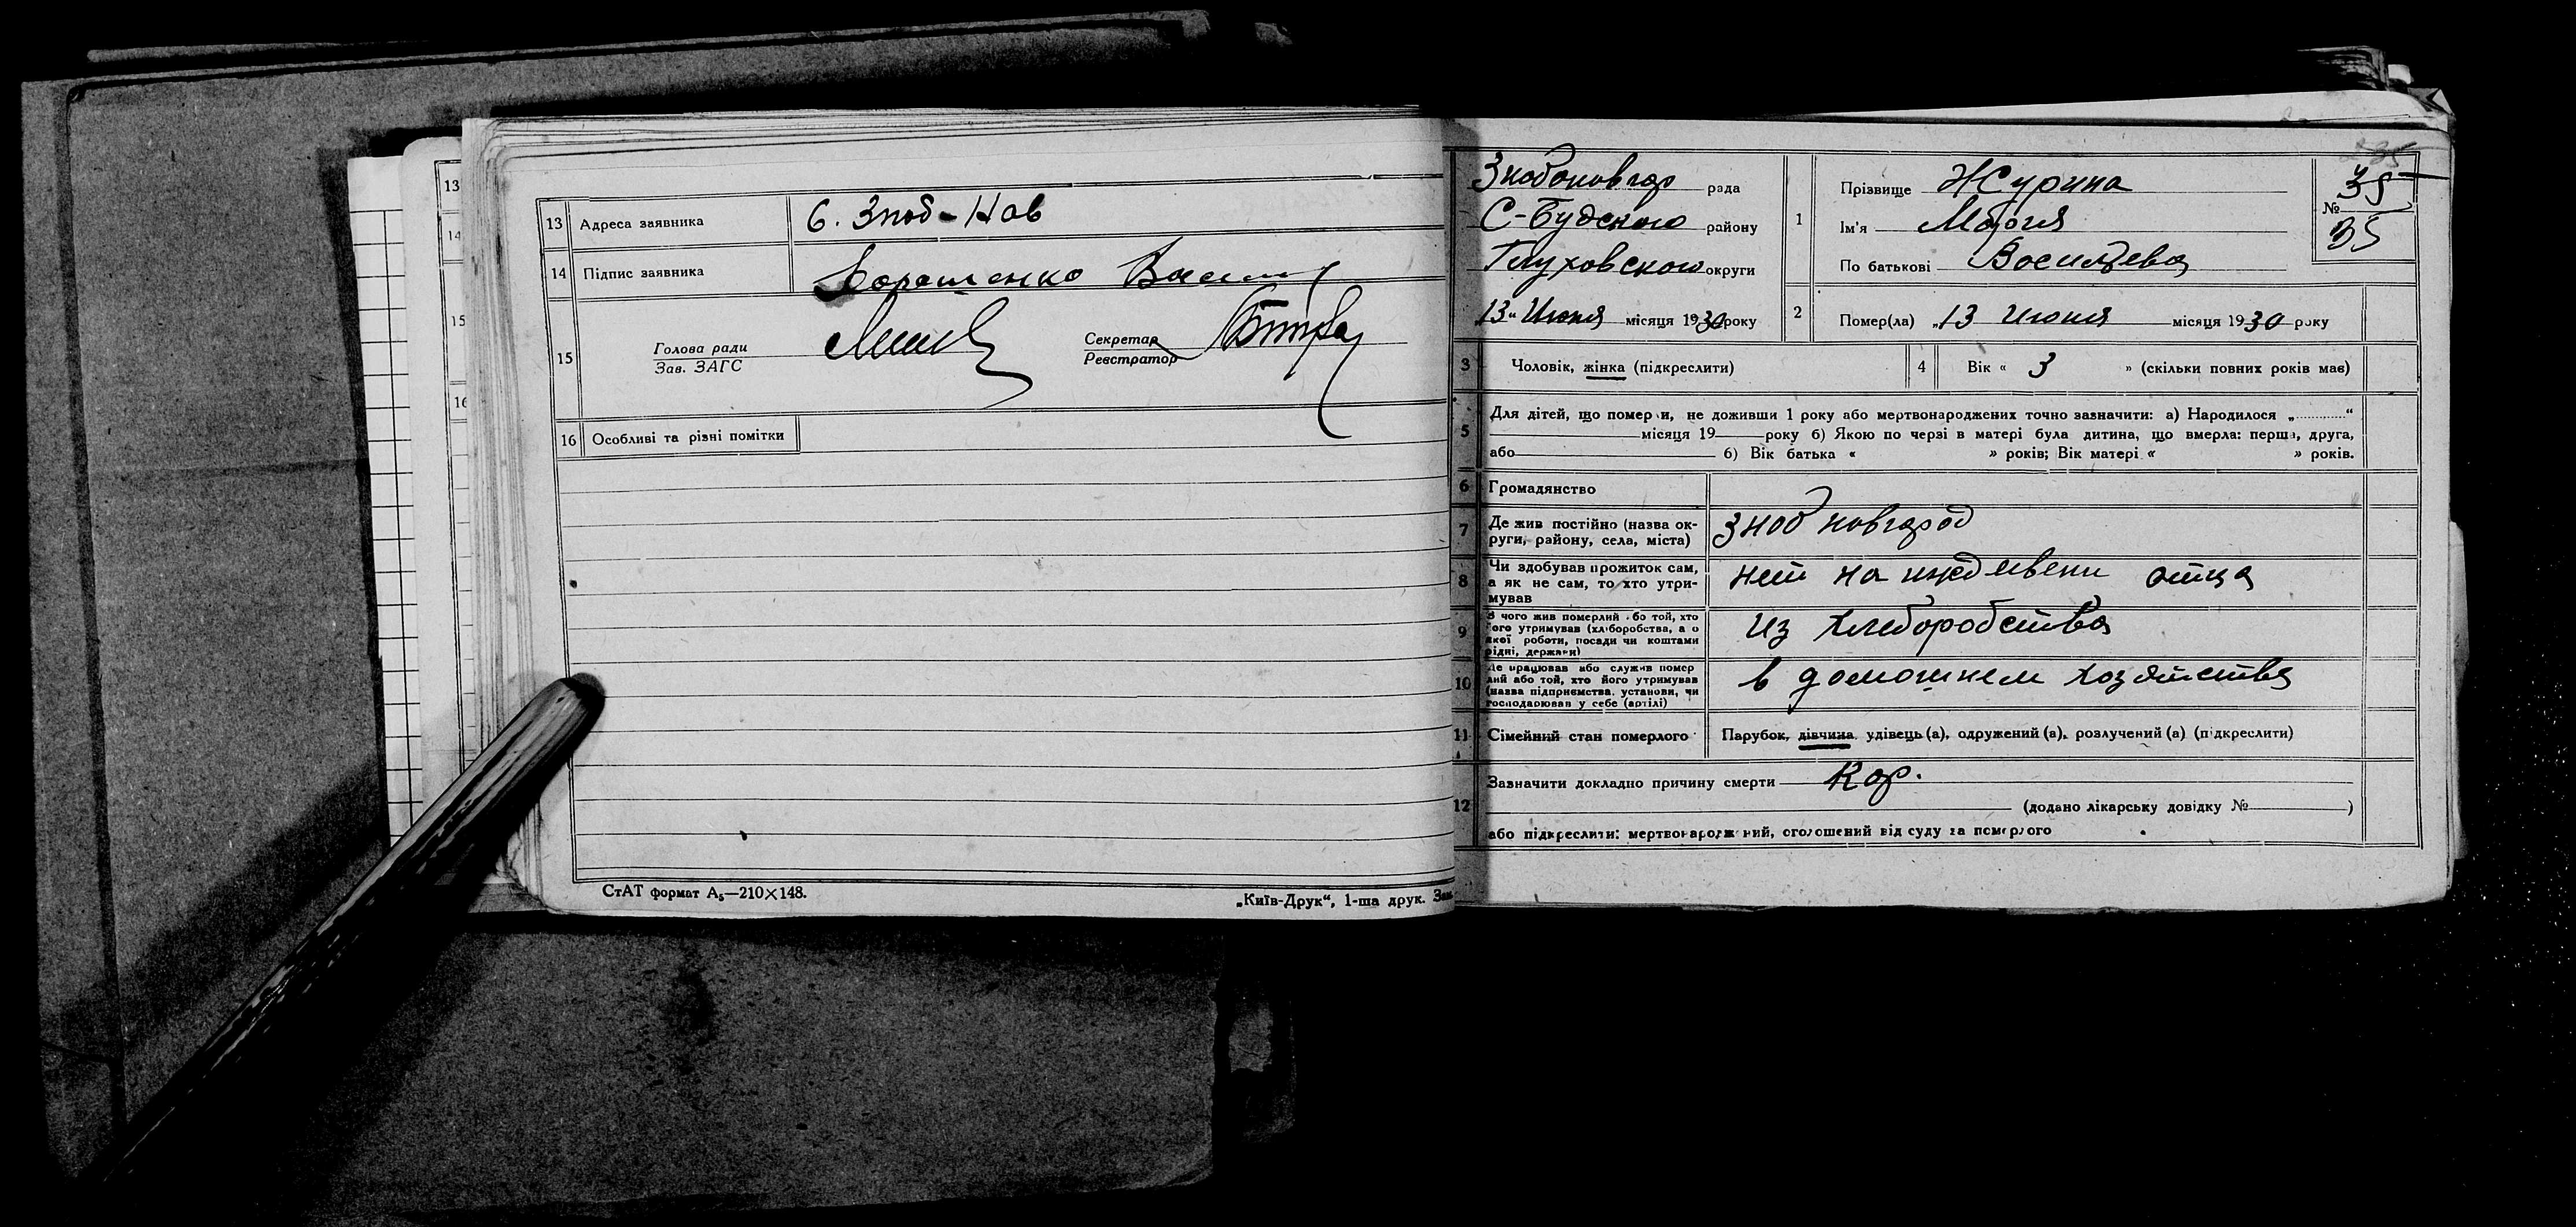 13
14
15
16
13 Адреса заявника С. Зноб-Нов
14 Підпис заявника
15 Голова ради
Зав. ЗАГС
Секретар
Реєстратор
16 Особливі та різні помітки
СтАТ формат А₅—210×148.
„Київ-Друк“, 1-ша друк. Зам
Знобоновгор рада
С-Будского району
Глуховского округи
„13“ Июня місяця 1930 року
1 Прізвище Журина
Ім'я Мария
По батькові Васильева
35
№
35
2 Помер(ла) „13 Июня місяця 1930 року
3 Чоловік, жінка (підкреслити)
4 Вік « 3 » (скільки повних років має)
5 Для дітей, що померли, не доживши 1 року або мертвонароджених точно зазначити: а) Народилося „ “
місяця 19 року б) Якою по черзі в матері була дитина, що вмерла: перша, друга,
або б) Вік батька « » років; Вік матері « » років.
6 Громадянство
7 Де жив постійно (назва ок-
руги, району, села, міста)
Зноб Новгород
8 Чи здобував прожиток сам,
а як не сам, то хто утри-
мував
нет на иждевени отца
9 З чого жив померлий або той, хто
його утримував (хліборобства, а о
якої роботи, посади чи коштами
рідні, держави)
из хлеборобства
10 Де працював або служив помер
лий або той, хто його утримував
(назва підприємства, установи, чи
господарював у себе (артілі)
в домошнем хозяйства
11 Сімейний стан померлого Парубок, дівчина, удівець (а), одружений (а), розлучений (а) (підкреслити)
12 Зазначити докладно причину смерти Кор.
(додано лікарську довідку № )
або підкреслити: мертвонароджений, оголошений від суду за померлого